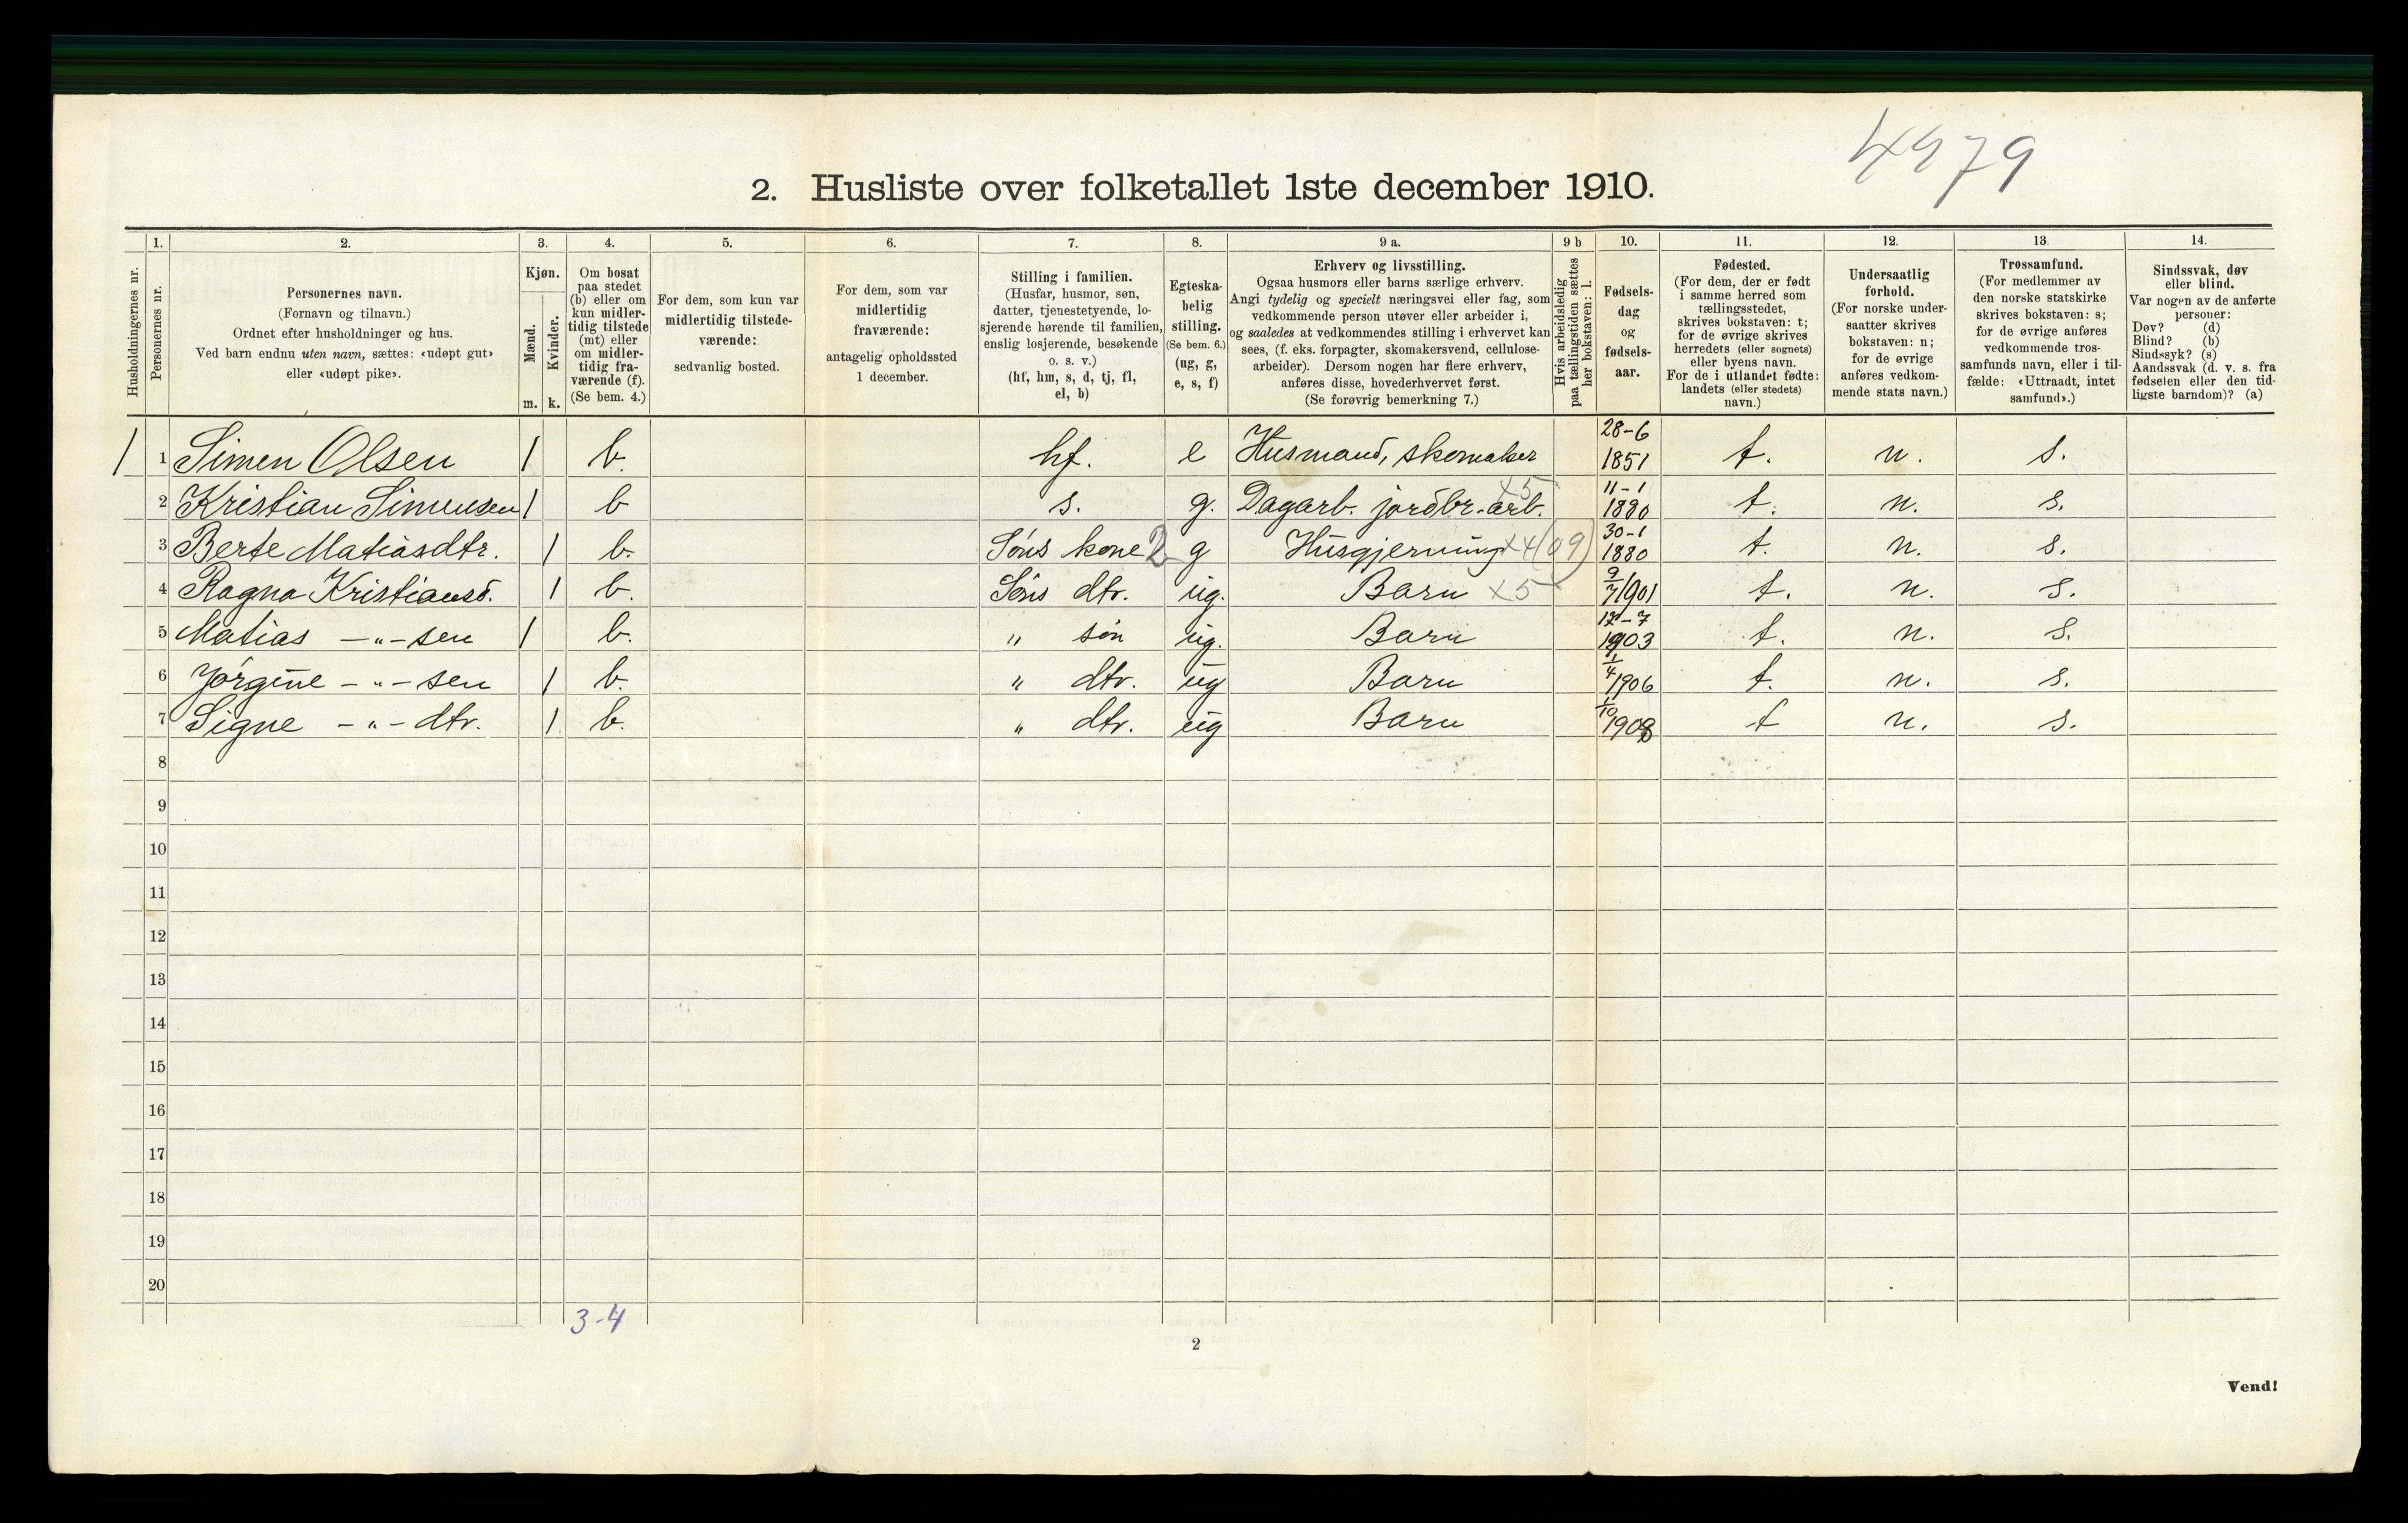 4979
2. Husliste over folketallet 1ste december 1910.
Husholdningernes nr.
1.
Personernes nr.
2.
Personernes navn.
(Fornavn og tilnavn.)
Ordnet efter husholdninger og hus.
Ved barn endnu uten navn, sættes: «udøpt gut»
eller «udøpt pike».
3.
Kjøn.
Mænd.
Kvinder.
m.
k.
4.
Om bosat
paa stedet
(b) eller om
kun midler-
tidig tilstede
(mt) eller
om midler-
tidig fra-
værende (f).
(Se bem. 4.)
5.
For dem, som kun var
midlertidig tilstede-
værende:
sedvanlig bosted.
6.
For dem, som var
midlertidig
fraværende:
antagelig opholdssted
1 december.
7.
Stilling i familien.
(Husfar, husmor, søn,
datter, tjenestetyende, lo-
sjerende hørende til familien,
enslig losjerende, besøkende
o. s. v.)
(hf, hm, s, d, tj, fl,
el, b)
8.
Egteska-
belig
stilling.
(Se bem. 6.)
(ug, g,
e, s, f)
9 a.
Erhverv og livsstilling.
Ogsaa husmors eller barns særlige erhverv.
Angi tydelig og specielt næringsvei eller fag, som
vedkommende person utøver eller arbeider i,
og saaledes at vedkommendes stilling i erhvervet kan
sees, (f. eks. forpagter, skomakersvend, cellulose-
arbeider). Dersom nogen har flere erhverv,
anføres disse, hovederhvervet først.
(Se forøvrig bemerkning 7.)
9 b
Hvis arbeidsledig
paa tællingstiden sættes
her bokstaven: l.
10.
Fødsels-
dag
og
fødsels-
aar.
11.
Fødested.
(For dem, der er født
i samme herred som
tællingsstedet,
skrives bokstaven: t;
for de øvrige skrives
herredets (eller sognets)
eller byens navn.
For de i utlandet fødte:
landets (eller stedets)
navn.)
12.
Undersaatlig
forhold.
(For norske under-
saatter skrives
bokstaven: n;
for de øvrige
anføres vedkom-
mende stats navn.)
13.
Trossamfund.
(For medlemmer av
den norske statskirke
skrives bokstaven: s;
for de øvrige anføres
vedkommende tros-
samfunds navn, eller i til-
fælde: «Uttraadt, intet
samfund».)
14.
Sindssvak, døv
eller blind.
Var nogen av de anførte
personer:
Døv? (d)
Blind? (b)
Sindssyk? (s)
Aandssvak (d. v. s. fra
fødselen eller den tid-
ligste barndom)? (a)
1 1 Simen Olsen 1 b. hf. e Husmand, skomaker 28-6 1851 t. n. s.
2 Kristian Simensen 1 b s. g. Dagarb. jordbr.arb. x5 11-1 1880 t. n. s.
3 Berte Matiasdtr. 1 b. Søns kone 2 g Husgjerning x4(09) 30-1 1880 t. n. s.
4 Ragna Kristiansd. 1 b. Søns dtr. ug. Barn x5 9/7 1901 t. n. s.
5 Matias -"-sen 1 b. " søn ug. Barn 12-7 1903 t. n. s.
6 Jørgine -"-sen 1 b. " dtr. ug Barn 1/4 1906 t. n. s.
7 Signe -"-dtr. 1 b. " dtr. ug Barn 1/10 1908 t n. s.
8
9
10
11
12
13
14
15
16
17
18
19
20
3-4
2
Vend!